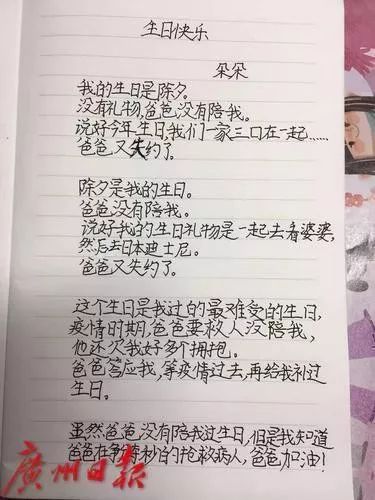 生日快乐
朵朵
我的生日是除夕。
没有礼物,爸爸没有陪我。
说好今年生日,我们一家三口在一起……
爸爸又失约了。
除夕是我的生日。
爸爸没有陪我。
说好我的生日礼物是一起去看婆婆,
然后去日本迪士尼。
爸爸又失约了。
这个生日是我过的最难受的生日,
疫情时期,爸爸要救人没陪我,
他还欠我好多个拥抱。
爸爸答应我,等疫情过去,再给我补过
生日。
虽然爸爸没有陪我过生日,但是我知道
爸爸在争秒的抢救病人,爸爸加油!
广州日报